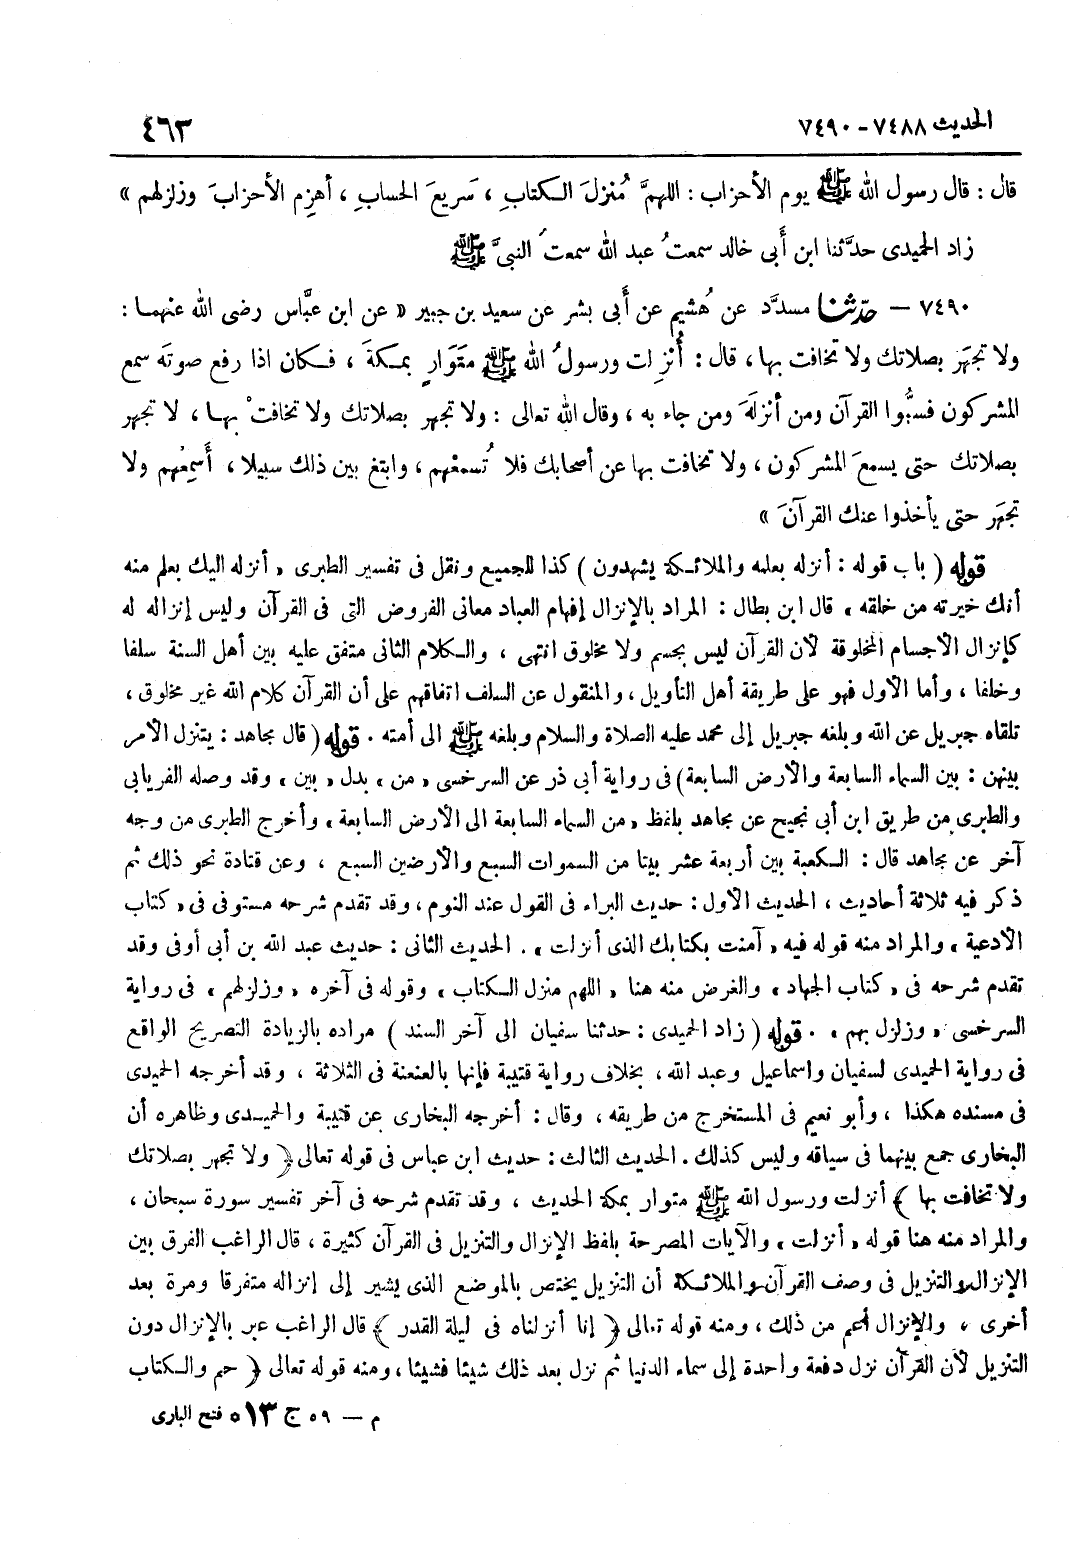 الحديث ٧٤٨٨ - ٧٤٩٠ ٤٦٣
قال : قال رسول الله ﷺ يوم الأحزاب : اللهمَّ مُنزلَ الكتابِ ، سَريعَ الحسابِ ، أهزِم الأحزابَ وزلزلهم »
زاد الحميدى حدَّثنا ابن أَبى خالد سمعتُ عبد الله سمعتُ النبىَّ ﷺ
٧٤٩٠ — حدّثنا مسدَّد عن هُشيم عن أَبى بشر عن سعيد بن جبير « عن ابن عبَّاس رضى الله عنهما :
ولا تجهَر بصلاتك ولا تخافت بها ، قال : أُنزِلت ورسولُ الله ﷺ متَوارٍ بمكةَ ، فكان اذا رفع صوتَه سمع
المشركون فسبُّوا القرآن ومن أنزلَهَ ومن جاء به ، وقال الله تعالى : ولا تجهر بصلاتك ولا تخافتْ بها ، لا تجهر
بصلاتك حتى يسمعَ المشركون ، ولا تخافت بها عن أصحابك فلا تُسمعْهم ، وابتغ بين ذلك سبيلا ، أَسمِعْهم ولا
تجهَر حتى يأخذوا عنك القرآنَ »
قوله ( باب قوله : أنزله بعلمه والملائكة يشهدون ) كذا للجميع ونقل فى تفسير الطبرى « أنزله اليك بعلم منه
أنك خيرته من خلقه » قال ابن بطال : المراد بالإنزال إفهام العباد معانى الفروض التى فى القرآن وليس إنزاله له
كإنزال الأجسام المخلوقة لأن القرآن ليس بجسم ولا مخلوق انتهى ، والكلام الثانى متفق عليه بين أهل السنة سلفا
وخلفا ، وأما الأول فهو على طريقة أهل التأويل ، والمنقول عن السلف اتفاقهم على أن القرآن كلام الله غير مخلوق ،
تلقاه جبريل عن الله وبلغه جبريل إلى محمد عليه الصلاة والسلام وبلغه ﷺ الى أمته . قوله ( قال مجاهد : يتنزل الأمر
بينهن : بين السماء السابعة والأرض السابعة ) فى رواية أبى ذر عن السرخسى « من » بدل « بين » وقد وصله الفريابى
والطبرى من طريق ابن أبى نجيح عن مجاهد بلفظ « من السماء السابعة الى الأرض السابعة » وأخرج الطبرى من وجه
آخر عن مجاهد قال : الكعبة بين أربعة عشر بيتا من السموات السبع والأرضين السبع ، وعن قتادة نحو ذلك ثم
ذكر فيه ثلاثة أحاديث ، الحديث الأول : حديث البراء فى القول عند النوم ، وقد تقدم شرحه مستوفى فى « كتاب
الأدعية » والمراد منه قوله فيه « آمنت بكتابك الذى أنزلت » . الحديث الثانى : حديث عبد الله بن أبى أوفى وقد
تقدم شرحه فى « كتاب الجهاد » والغرض منه هنا « اللهم منزل الكتاب » وقوله فى آخره « وزلزلهم » فى رواية
السرخسى « وزلزل بهم » . قوله ( زاد الحميدى : حدثنا سفيان الى آخر السند ) مراده بالزيادة التصريح الواقع
فى رواية الحميدى لسفيان واسماعيل وعبد الله ، بخلاف رواية قتيبة فإنها بالعنعنة فى الثلاثة ، وقد أخرجه الحميدى
فى مسنده هكذا ، وأبو نعيم فى المستخرج من طريقه ، وقال : أخرجه البخارى عن قتيبة والحميدى وظاهره أن
البخارى جمع بينهما فى سياقه وليس كذلك . الحديث الثالث : حديث ابن عباس فى قوله تعالى ﴿ ولا تجهر بصلاتك
ولا تخافت بها ﴾ أنزلت ورسول الله ﷺ متوار بمكة الحديث ، وقد تقدم شرحه فى آخر تفسير سورة سبحان ،
والمراد منه هنا قوله « أنزلت » والآيات المصرحة بلفظ الإنزال والتنزيل فى القرآن كثيرة ، قال الراغب الفرق بين
الإنزال والتنزيل فى وصف القرآن والملائكة أن التنزيل يختص بالموضع الذى يشير إلى إنزاله متفرقا ومرة بعد
أخرى ، والإنزال أعم من ذلك ، ومنه قوله تعالى ﴿ إنا أنزلناه فى ليلة القدر ﴾ قال الراغب عبر بالإنزال دون
التنزيل لأن القرآن نزل دفعة واحدة إلى سماء الدنيا ثم نزل بعد ذلك شيئا فشيئا ، ومنه قوله تعالى ﴿ حم والكتاب
م — ٥٩ ج ١٣ ٥ فتح البارى